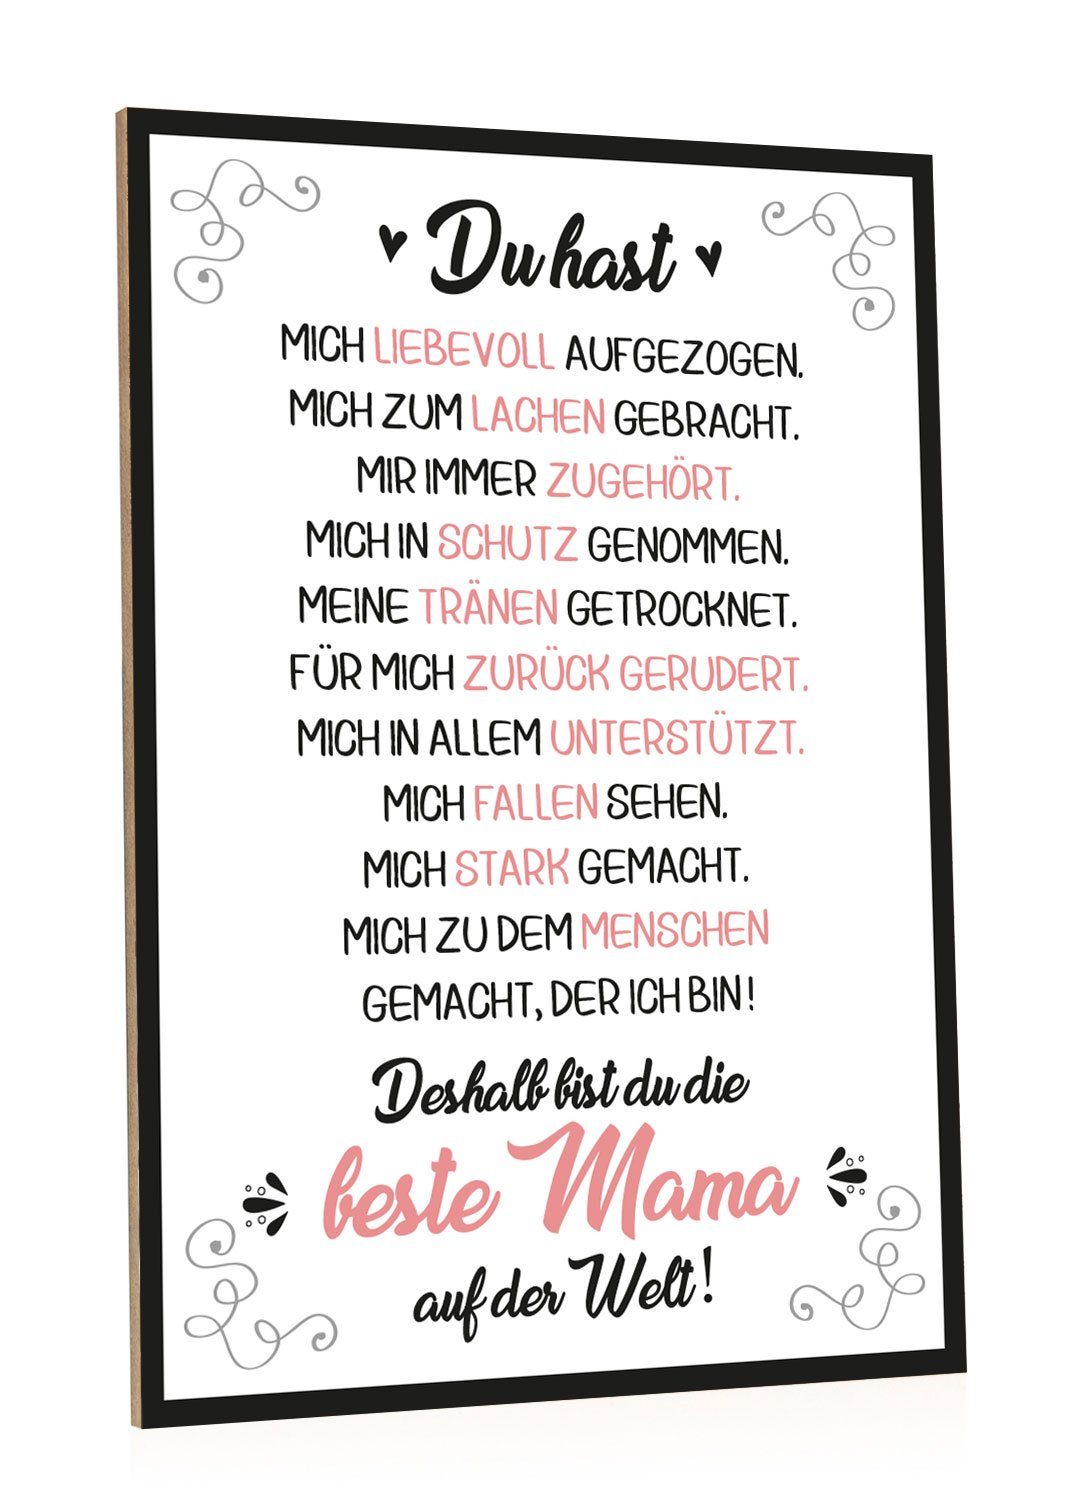 Du hast
MICH LIEBEVOLL AUFGEZOGEN.
MICH ZUM LACHEN GEBRACHT.
MIR IMMER ZUGEHÖRT.
MICH IN SCHUTZ GENOMMEN.
MEINE TRÄNEN GETROCKNET.
FÜR MICH ZURÜCK GERUDERT.
MICH IN ALLEM UNTERSTÜTZT.
MICH FALLEN SEHEN.
MICH STARK GEMACHT.
MICH ZU DEM MENSCHEN
GEMACHT, DER ICH BIN!
Deshalb bist du die
beste Mama
auf der Welt!